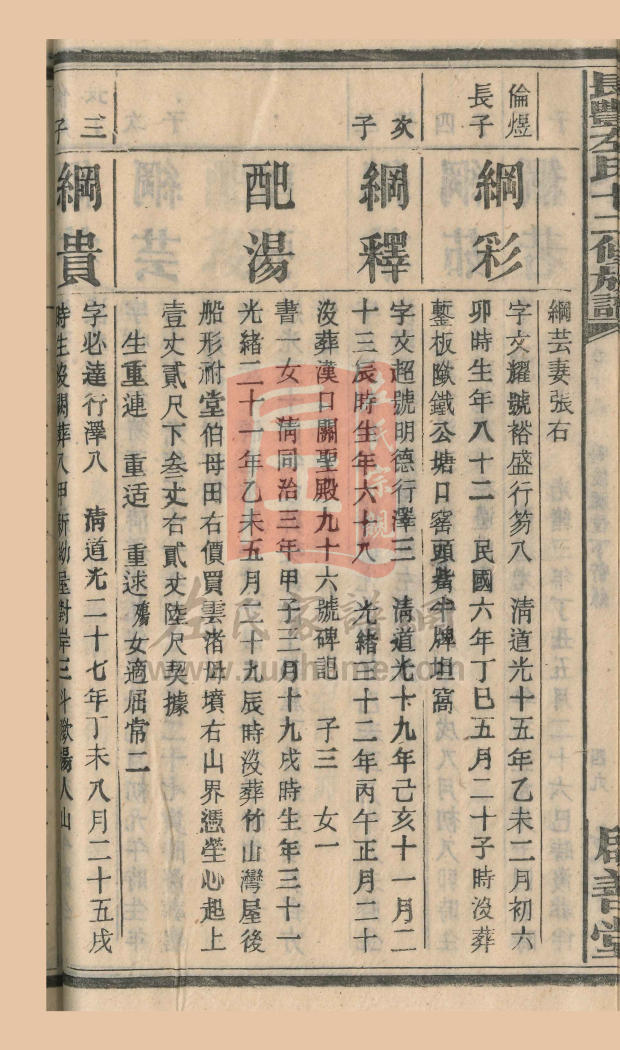 長豐左氏十二修族譜
啟善堂
綱芸妻張右
倫煜
長子
綱彩
字文耀號裕盛行笏八 清道光十五年乙未二月初六
卯時生年八十二 民國六年丁巳五月二十子時沒葬
鏨板歐鐵公塘口窰頭黃牛牌坦窩
次
子
綱釋
字文超號明德行澤三 清道光十九年己亥十一月二
十三辰時生年六十八 光緒三十二年丙午正月二十
沒葬漢口關聖殿九十六號碑記 子三 女一
配湯
書一女 清同治三年甲子三月十九戌時生年三十一
光緒二十一年乙未五月二十九辰時沒葬竹山灣屋後
船形祔堂伯母田右價買雲渚母墳右山界憑塋心起上
壹丈貳尺下叁丈右貳丈陸尺契據
生重連 重适 重逑殤女適屈常二
三
子
綱貴
字必達行澤八 清道光二十七年丁未八月二十五戌
時生沒闕葬八甲新坳屋對岸三斗歐湯人山
左氏家譜網
www.zuojhome.com
左氏宗親